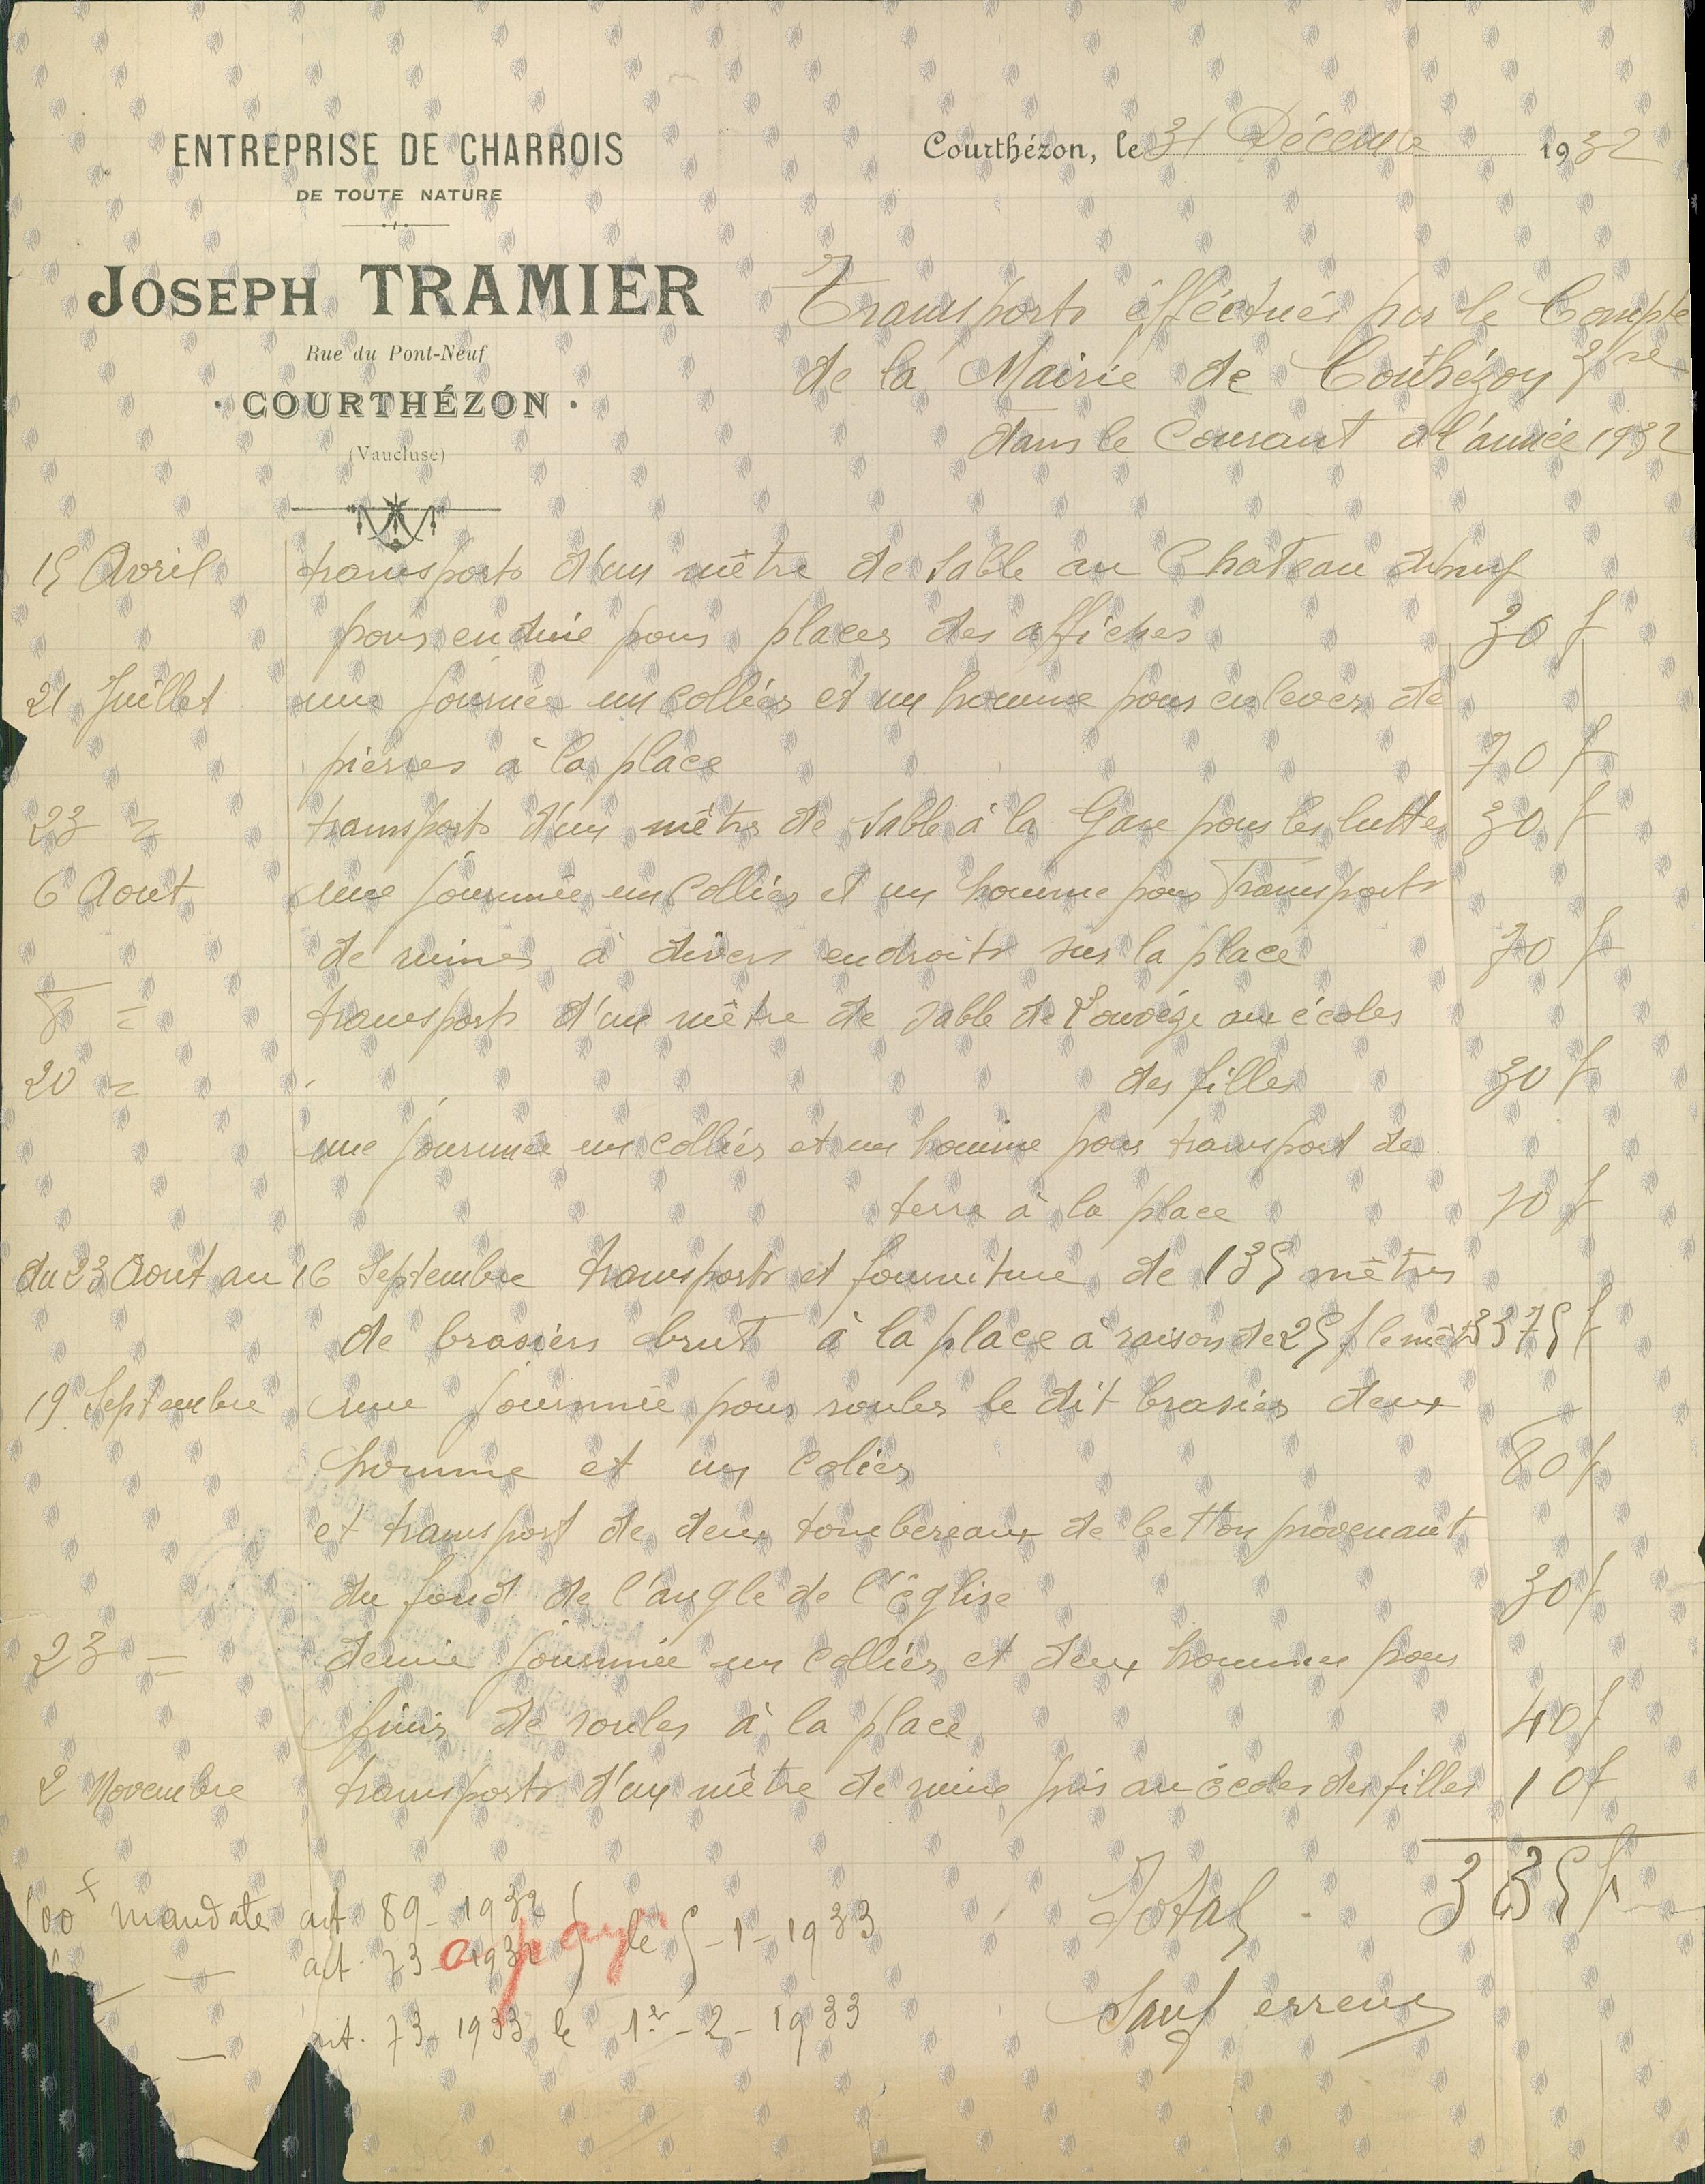 ENTREPRISE DE CHARROIS
DE TOUTE NATURE
JOSEPH TRAMIER
Rue du Pont-Neuf
COURTHÉZON
(Vaucluse)
Courthézon, le 31 Décembre 1932
Transports éfféctués par le Compte
de la Mairie de Couthézon
dans le Courant de l'année 1932
15 Avril transports d'un mêtre de sable au Chateau
pour enduie pour places des affiches 30 f
21 Juillet une journée un Colliér et un homme pour enlever de
piérres à la place 70 f
23 = transports d'un mêtre de sable à la Gare pour les luttes 30 f
6 Aout une journnée un Colliér et un homme pour Transports
de ruines à divers endroits sur la place 70 f
8 = transports d'un mêtre de sable de l'ouvéze au écoles
des filles 30 f
20 =
une journnée un colliér et un homme pour transport de
terre à la place 70 f
du 23 Aout au 16 Septembre transports et fourniture de 135 mêtres
de brasiers brut à la place à raison de 25 f le mêt 3375 f
19 Septembre une journnée pour rouler le dit brasier deux
homme et un coliér 80 f
et transport de deux tombereaux de betton provenant
du fond de l'angle de l'église 30 f
23 = demie journnée un colliér et deux hommes pour
finir de rouler à la place 40 f
2 Novembre transports d'un mêtre de ruine pris au écoles des filles 10 f
Total 3835 f
mandater art. 89 - 1932
art. 73 - 1932 le 5 - 1 - 1933
art. 73 1933 le 1er - 2 - 1933
a payé
Sauf erreur